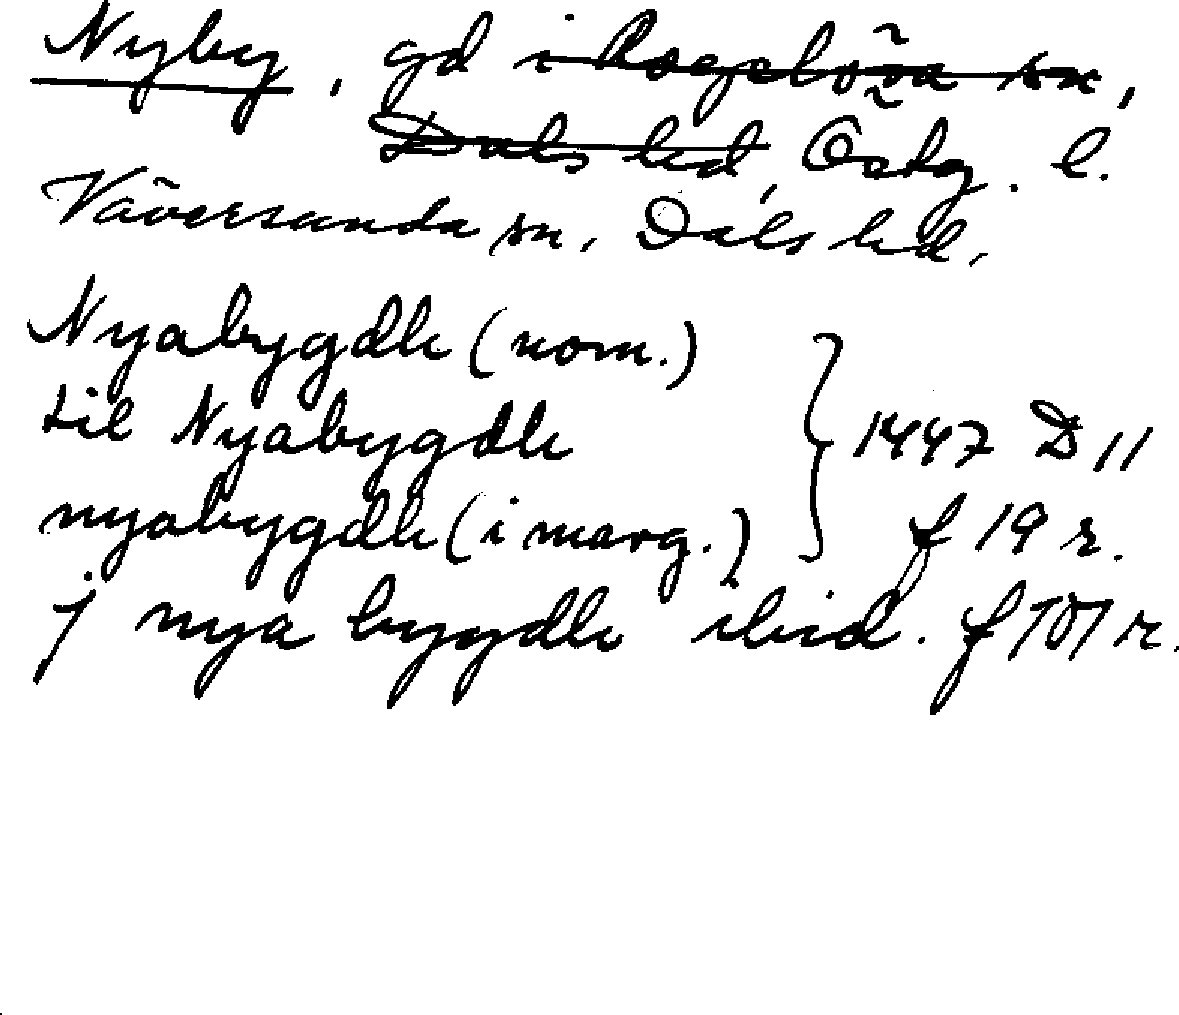 Nyby, gd i Rogslösa sn,
Dals hd, Östg. l.
Väversunda sn, Dals hd,
Nyabygdh (nom.)
til Nyabygdh
nyabygdh (i marg.) } 1447 D 11 f 19 r.
j nya bygdh ibid. f 101 r.